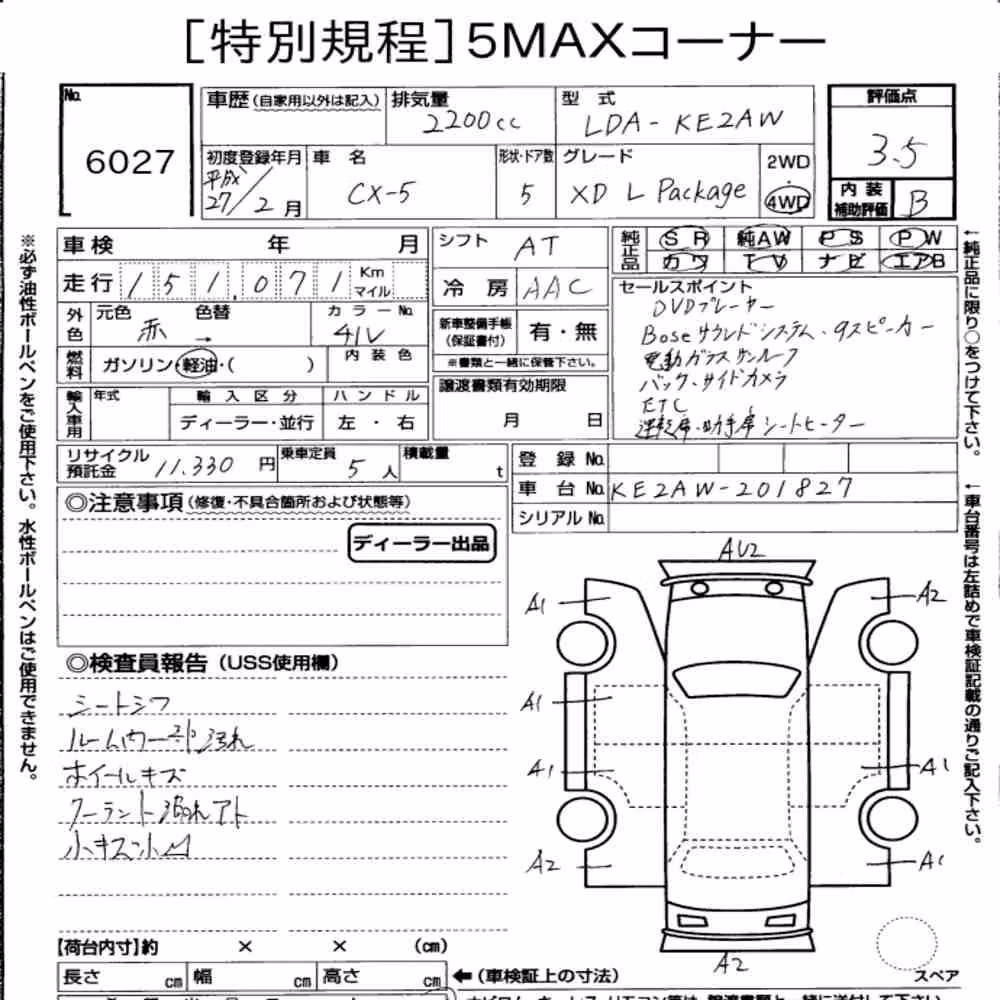 [特別規程]5MAXコーナー
No. 6027
車歴(自家用以外は記入) 排気量 2200cc 型式 LDA-KE2AW
初度登録年月 平成27/2月 車名 CX-5 形状・ドア数 5 グレード XD L Package 2WD・4WD
評価点 3.5
内装補助評価 B
車検 年 月
走行 151,071 Km マイル
外色 元色 赤 色替 → カラーNo. 41V
燃料 ガソリン・軽油・( ) 内装色
輸入車用 年式 輸入区分 ディーラー・並行 ハンドル 左・右
シフト AT
冷房 AAC
新車整備手帳(保証書付) 有・無
※書類と一緒に保管下さい。
譲渡書類有効期限
月 日
純正品 SR 純AW PS PW
カワ TV ナビ エアB
セールスポイント
DVDプレーヤー
Boseサウンドシステム、9スピーカー
電動ガラスサンルーフ
バック、サイドカメラ
ETC
運転席・助手席シートヒーター
リサイクル預託金 11,330円 乗車定員 5人 積載量 t
登録No.
車台No. KE2AW-201827
シリアルNo.
◎注意事項(修復・不具合箇所および状態等)
ディーラー出品
◎検査員報告(USS使用欄)
シートシワ
ルーム内一部汚れ
ホイールキズ
クーラント漏れアト
小キズ小凹
AU2
A1 A2
A1
A1 A1
A2 A1
A2
スペア
【荷台内寸】約 × × (cm)
長さ cm 幅 cm 高さ cm ←(車検証上の寸法)
※必ず油性ボールペンをご使用下さい。水性ボールペンはご使用できません。
←純正品に限り○をつけて下さい。
←車台番号は左詰めで車検証記載の通りご記入下さい。